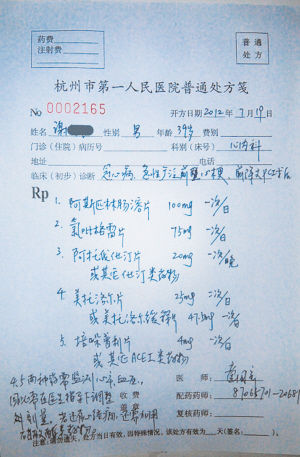 药费
注射费
普通
处方
杭州市第一人民医院普通处方笺
No 0002165 开方日期2012年7月19日
姓名 谢 性别 男 年龄 39岁 费别
门诊(住院)病历号 科别(床号) 心内科
地址 电话
临床(初步)诊断 冠心病，急性广泛前壁心梗，前降支PCI术后
Rp
1. 阿斯匹林肠溶片 100mg 一次/日
2. 氯吡格雷片 75mg 一次/日
3. 阿托伐他汀片 20mg 一次/晚
或其它他汀类药物
4. 美托洛尔片 25mg 二次/日
或美托洛尔缓释片 47.5mg 一次/日
5. 培哚普利片 4mg 一次/日
或其它ACEI类药物
4.5两种药需监测心率，血压，
因此需在医生指导下调整 收费
剂量，
医师：
配药药师： 87065701-20581
复核药师：
注意：请勿遗失，处方当日有效，因特殊情况，该处方有效为 天(签名：)。